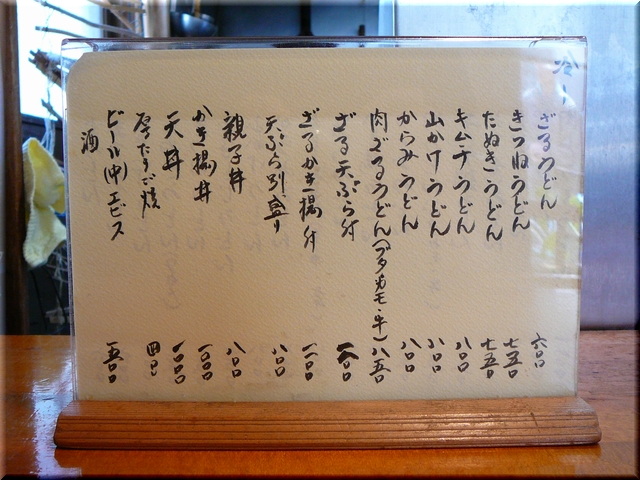 冷し
ざるうどん 六〇〇
きつねうどん 七五〇
たぬきうどん 七五〇
キムチうどん 八〇〇
山かけうどん 八〇〇
からみうどん 八〇〇
肉ざるうどん(ブタ・カモ・牛) 八五〇
ざる天ぷら付
ざるかき揚付 一一〇〇
天ぷら別盛り 八〇〇
親子丼 八〇〇
かき揚丼 一〇〇〇
天丼 一〇〇〇
厚たまご焼 四〇〇
ビール(中)エビス 五〇〇
酒